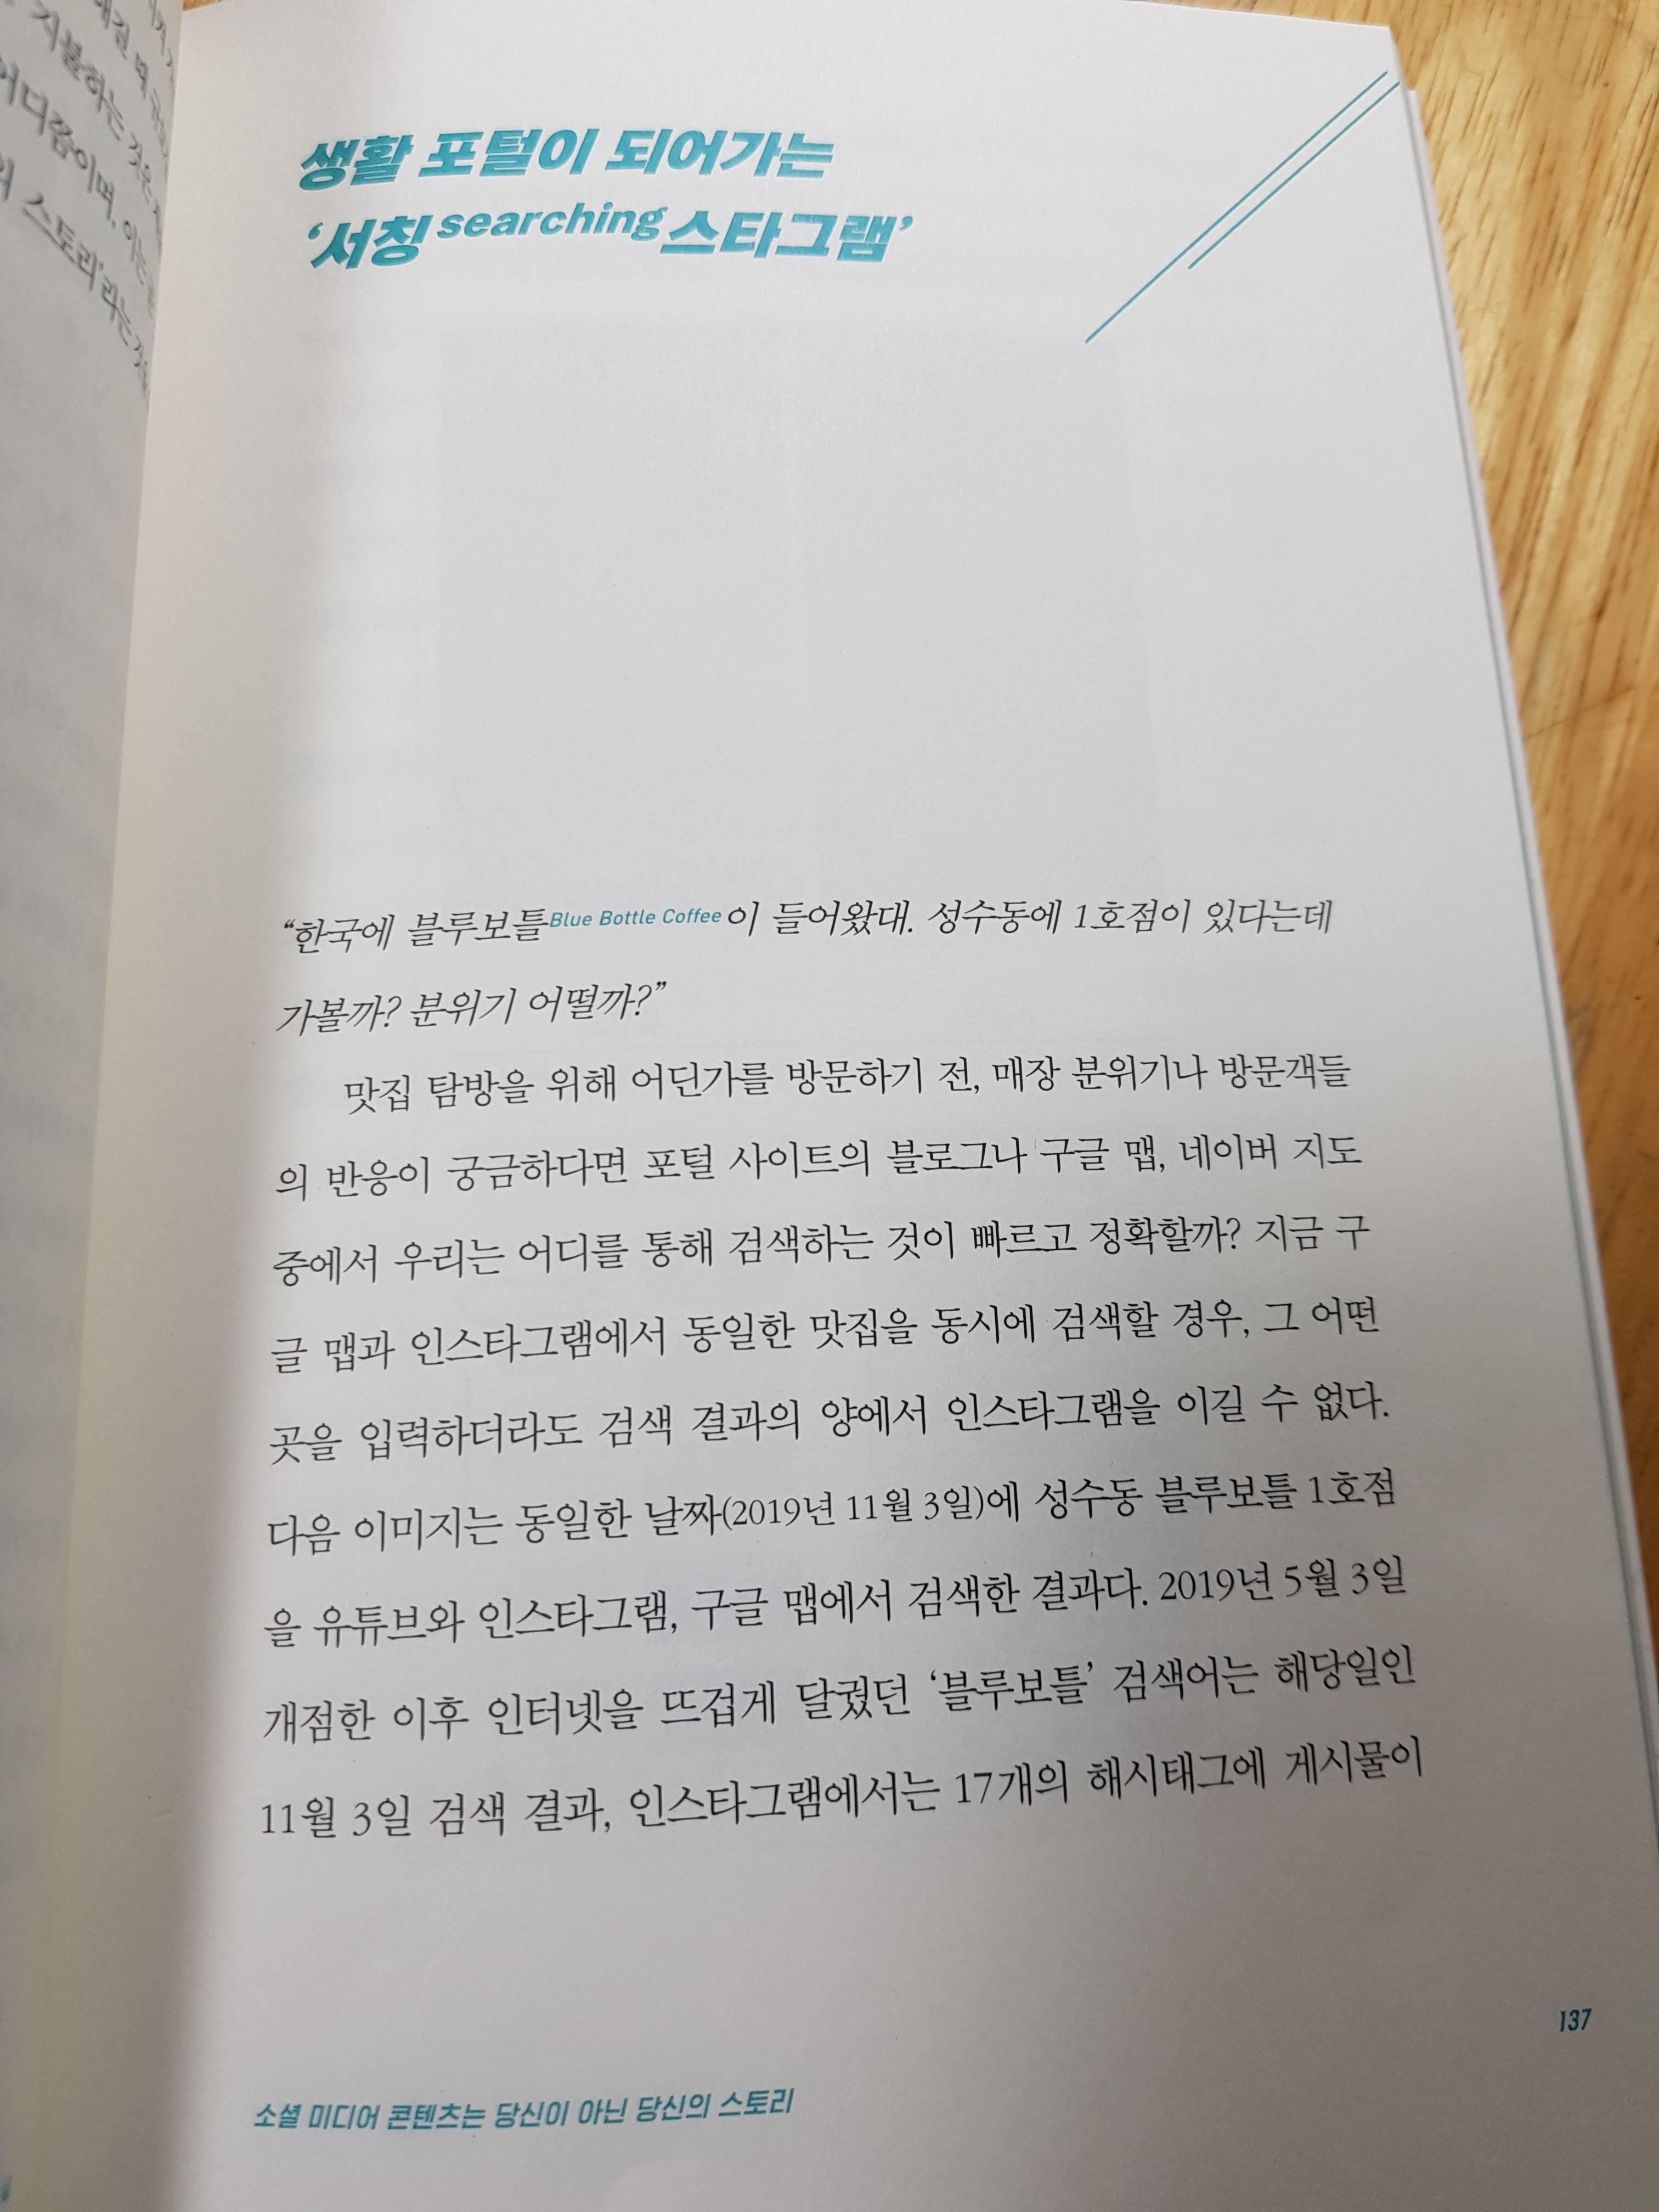 지불하는 것은
스토리'라는 것
생활 포털이 되어가는
‘서칭searching스타그램’
“한국에 블루보틀Blue Bottle Coffee이 들어왔대. 성수동에 1호점이 있다는데
가볼까? 분위기 어떨까?”
맛집 탐방을 위해 어딘가를 방문하기 전, 매장 분위기나 방문객들
의 반응이 궁금하다면 포털 사이트의 블로그나 구글 맵, 네이버 지도
중에서 우리는 어디를 통해 검색하는 것이 빠르고 정확할까? 지금 구
글 맵과 인스타그램에서 동일한 맛집을 동시에 검색할 경우, 그 어떤
곳을 입력하더라도 검색 결과의 양에서 인스타그램을 이길 수 없다.
다음 이미지는 동일한 날짜(2019년 11월 3일)에 성수동 블루보틀 1호점
을 유튜브와 인스타그램, 구글 맵에서 검색한 결과다. 2019년 5월 3일
개점한 이후 인터넷을 뜨겁게 달궜던 ‘블루보틀’ 검색어는 해당일인
11월 3일 검색 결과, 인스타그램에서는 17개의 해시태그에 게시물이
137
소셜 미디어 콘텐츠는 당신이 아닌 당신의 스토리